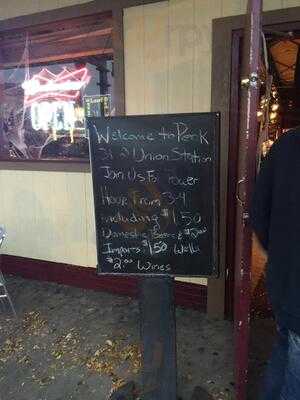 Welcome to Perk
Union Station
Join Us For Power
Hour From 3-4
including $1.50
Domestic Beers & $2.00
Imports $1.50 Wells
$2.00 Wines